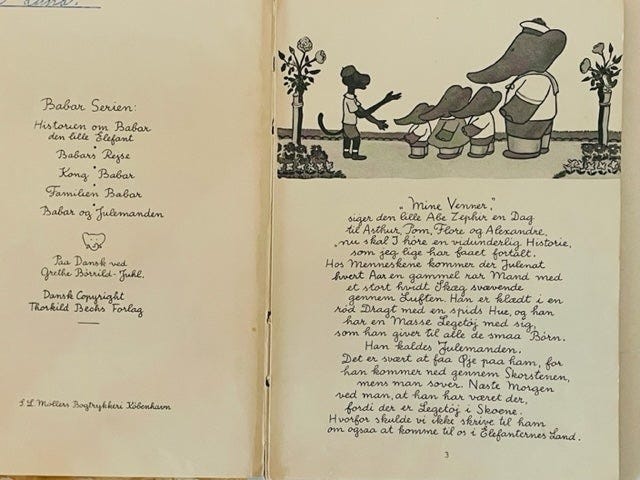 Lund.
Babar Serien:
Historien om Babar
den lille Elefant
Babars Rejse
Kong Babar
Familien Babar
Babar og Julemanden
Paa Dansk ved
Grethe Börrild-Juhl.
Dansk Copyright
Thorkild Becks Forlag
S. L. Møllers Bogtrykkeri København
„Mine Venner,”
siger den lille Abe Zephir en Dag
til Arthur, Pom, Flore og Alexandre,
„nu skal I höre en vidunderlig Historie,
som jeg lige har faaet fortalt.
Hos Menneskene kommer der Julenat
hvert Aar en gammel rar Mand med
et stort hvidt Skæg, svævende
gennem Luften. Han er klædt i en
röd Dragt med en spids Hue, og han
har en Masse Legetöj med sig,
som han giver til alle de smaa Börn.
Han kaldes Julemanden.
Det er svært at faa Øje paa ham, for
han kommer ned gennem Skorstenen,
mens man sover. Næste Morgen
ved man, at han har været der,
fordi der er Legetöj i Skoene.
Hvorfor skulde vi ikke skrive til ham
om ogsaa at komme til os i Elefanternes Land.
3